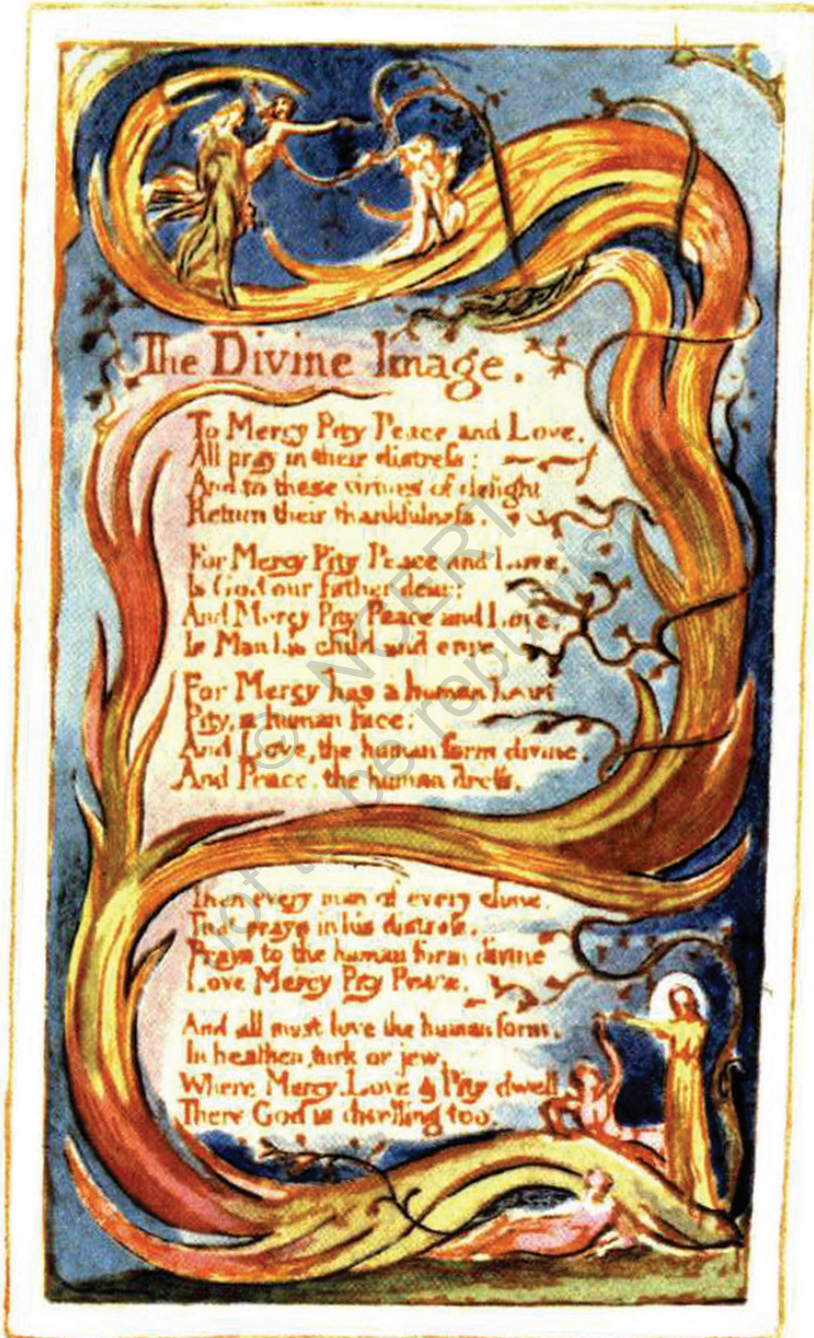 The Divine Image.
To Mercy Pity Peace and Love,
All pray in their distress:
And to these virtues of delight
Return their thankfulness.
For Mercy Pity Peace and Love,
Is God our father dear:
And Mercy Pity Peace and Love,
Is Man his child and care
For Mercy has a human heart
Pity, a human face:
And Love, the human form divine,
And Peace, the human dress.
Then every man of every clime,
That prays in his distress,
Prays to the human form divine
Love Mercy Pity Peace.
And all must love the human form,
In heathen, turk or jew,
Where Mercy, Love & Pity dwell
There God is dwelling too.
© NCERT
not to be republished